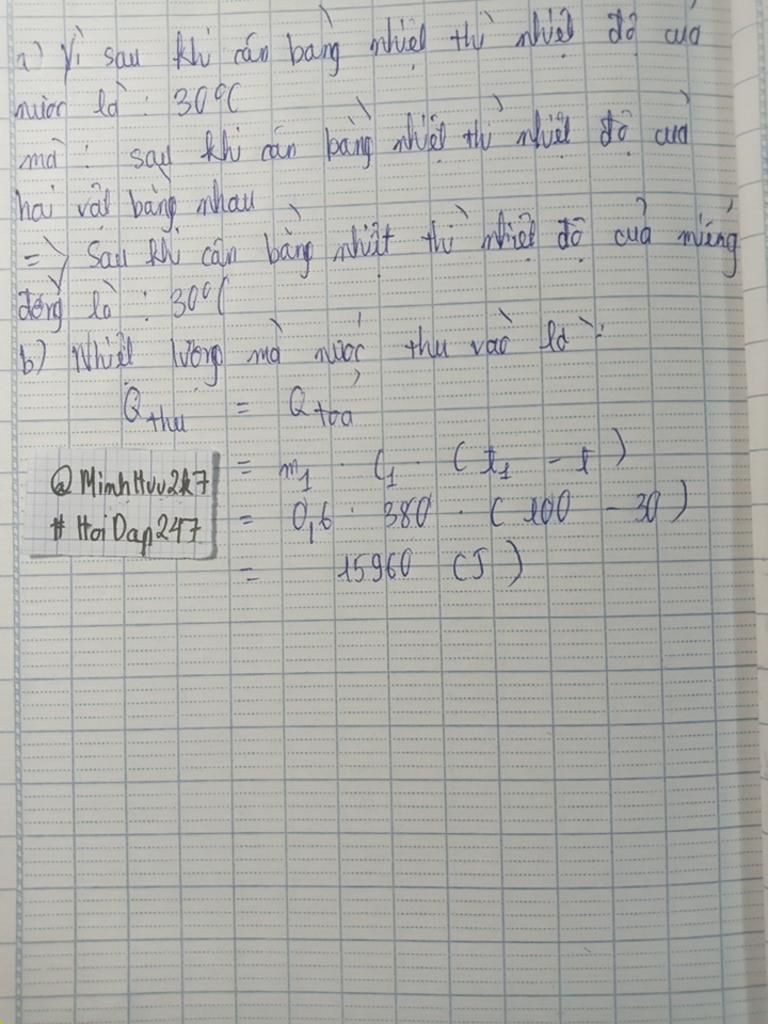 a) Vì sau khi cân bằng nhiệt thì nhiệt độ của
nước là : 30°C
mà : sau khi cân bằng nhiệt thì nhiệt độ của
hai vật bằng nhau
=> Sau khi cân bằng nhiệt thì nhiệt độ của miếng
đồng là : 30°C
b) Nhiệt lượng mà nước thu vào là :
Qthu = Qtoả
= m1 . C1 . ( t1 - t )
= 0,6 . 380 . ( 100 - 30 )
= 15960 (J)
@MinhHuu2k7
# HoiDap247